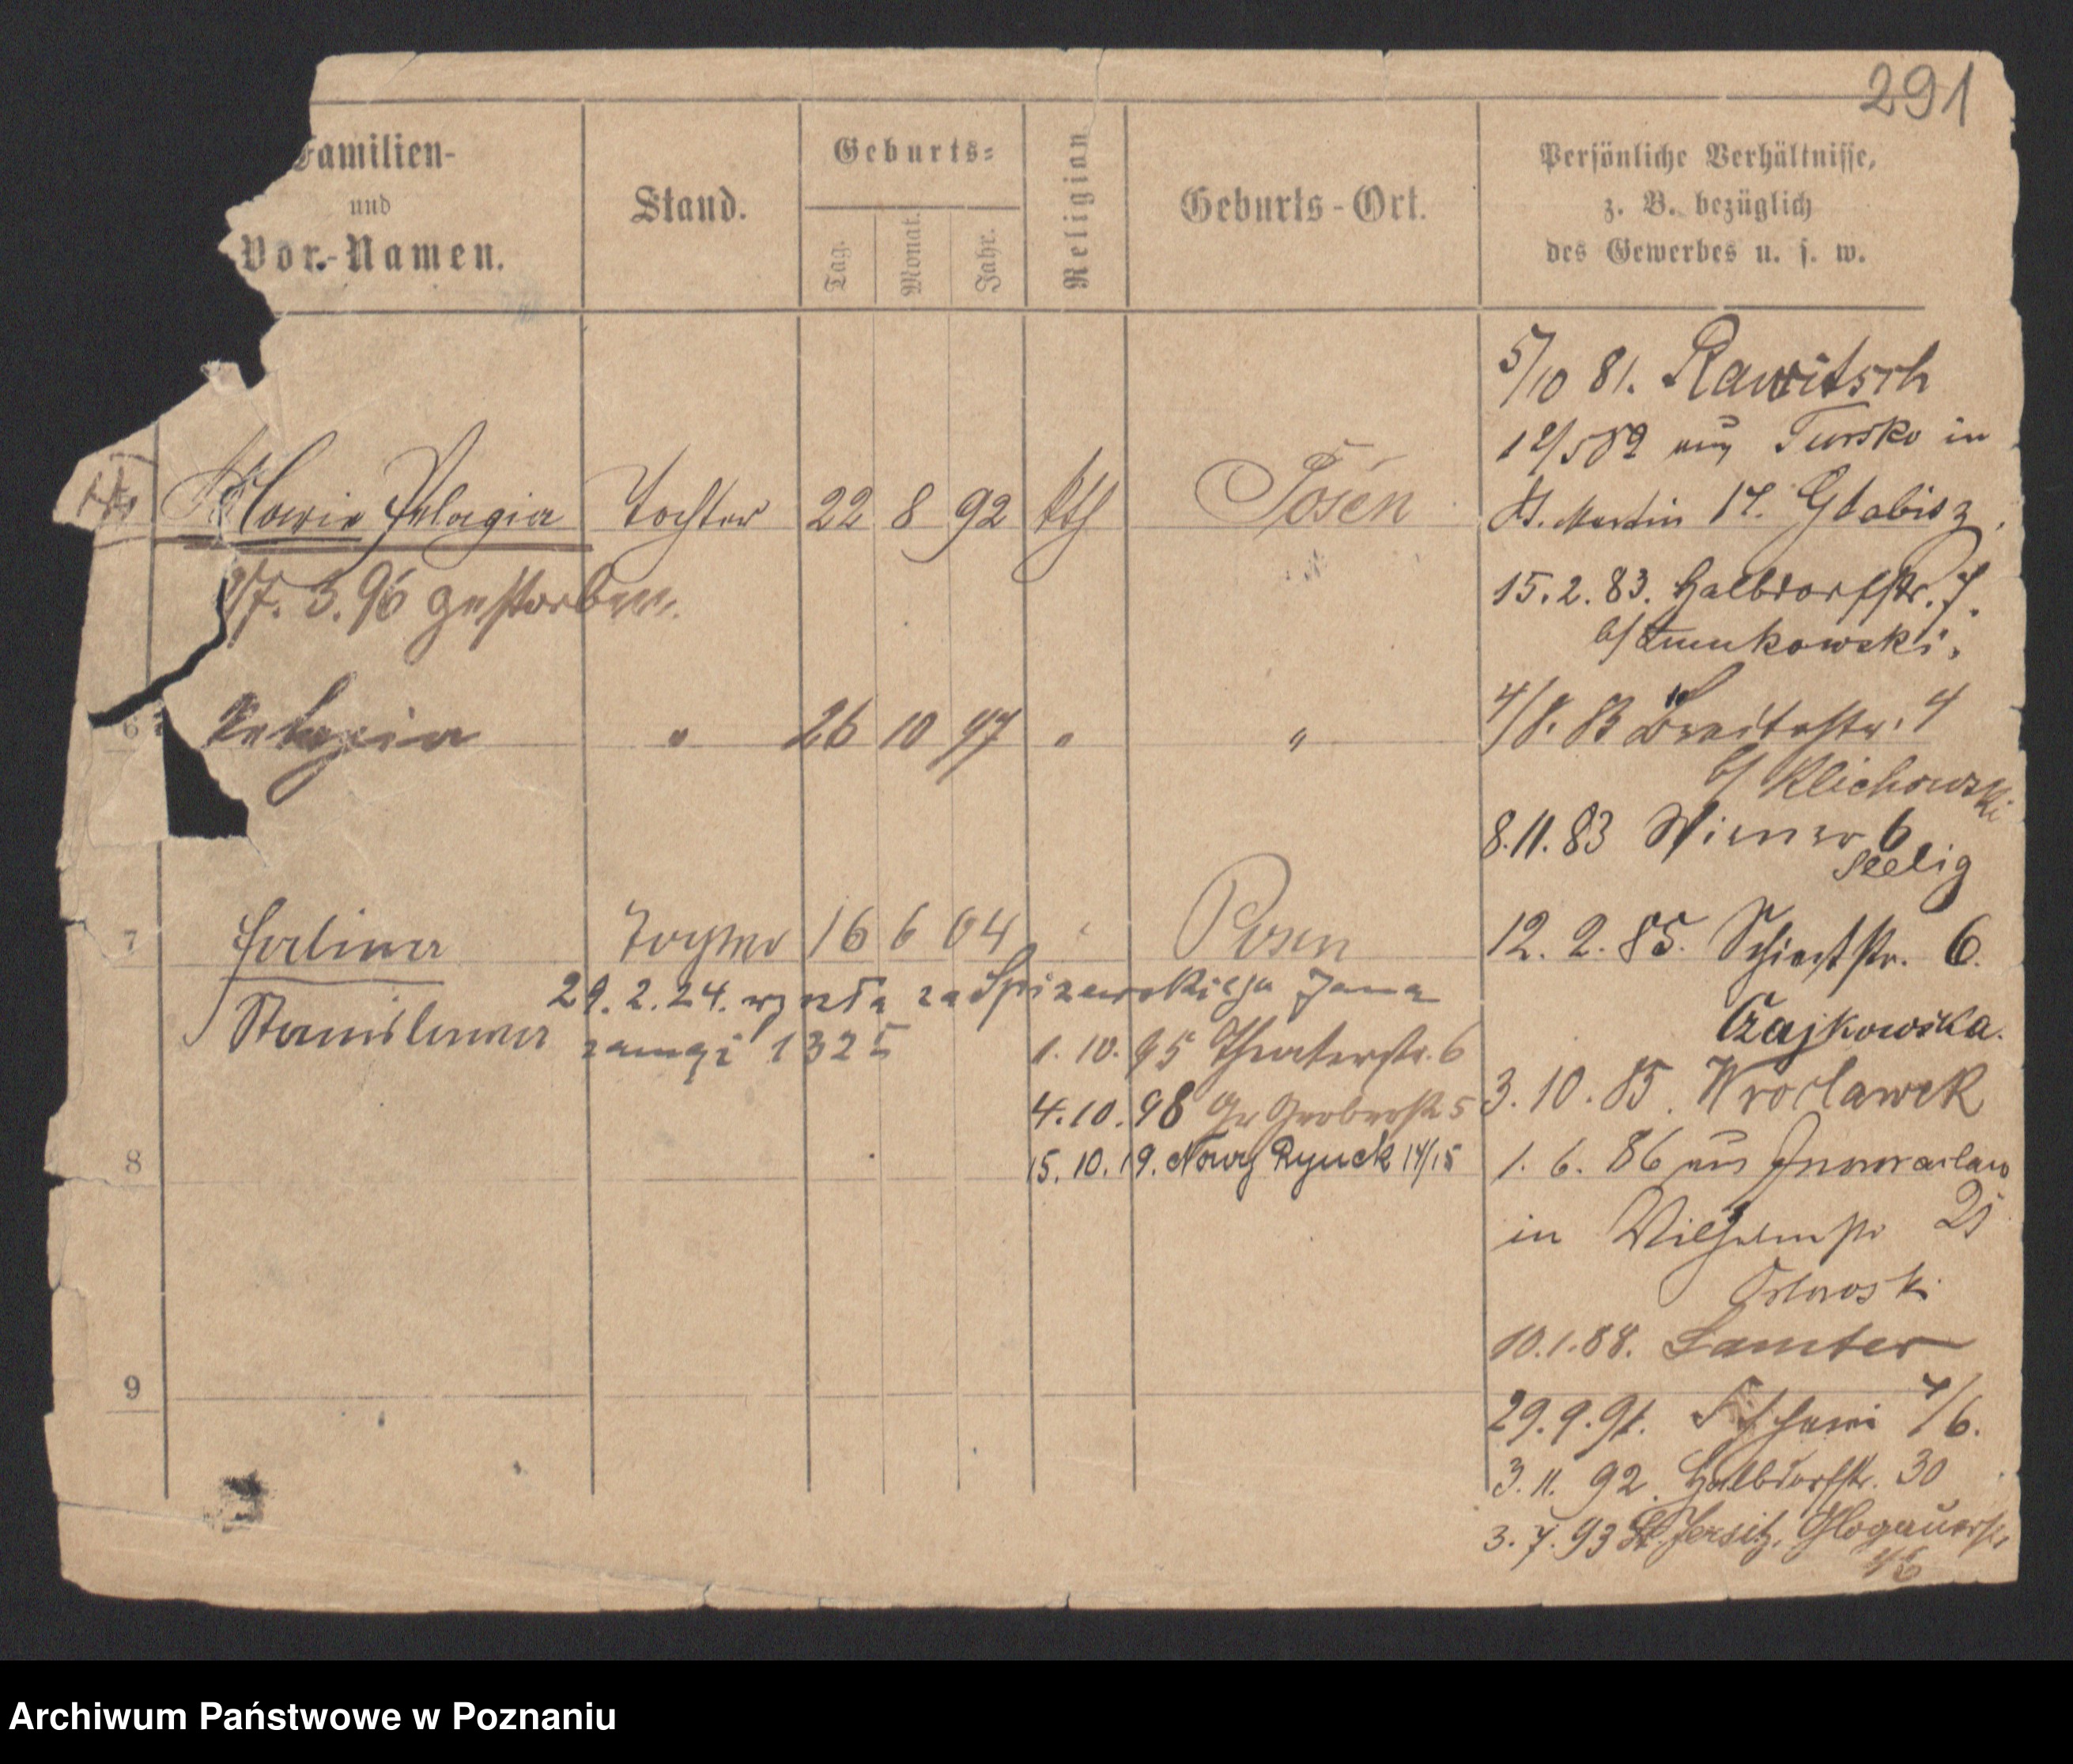 291
Familien-
und
Vor-Namen.
Stand.
Geburts-
Tag.
Monat.
Jahr.
Religion
Geburts-Ort.
Persönliche Verhältnisse,
z. B. bezüglich
des Gewerbes u. s. w.
5/10 81. Rawitsch
Tursko in
St. Martin 17. Glabisz
Maria Pelagia Tochter 22 8 92 kth Posen
15. 2. 83. Halbdorfstr. 7.
3. 96 gestorben.
6 Pelagia " 26 10 97 " "
4/8. 83 Breitestr. 4
b/ Klichowski
8. 11. 83 Wiener 6
Seelig
7 Halina Tochter 16 6 04 Posen
12. 2. 85. Schiestr. 6.
Stanislawa
29. 2. 24. wyszła za Spizewskiego Jana
Czajkowska.
1325
1. 10. 95 Theaterstr. 6
3. 10. 85. Wroclawek
4. 10. 98 Gr Gerberstr 5
1. 6. 86 aus Inowraclaw
8
15. 10. 19. Nowy Rynek 14/15
in Wilhelmstr 25
10. 1. 88. Samter
9
29. 9. 91. 7/6.
3. 11. 92. Halbdorfstr. 30
3. 7. 93 St. Jersitz, Glogauerstr
Archiwum Państwowe w Poznaniu